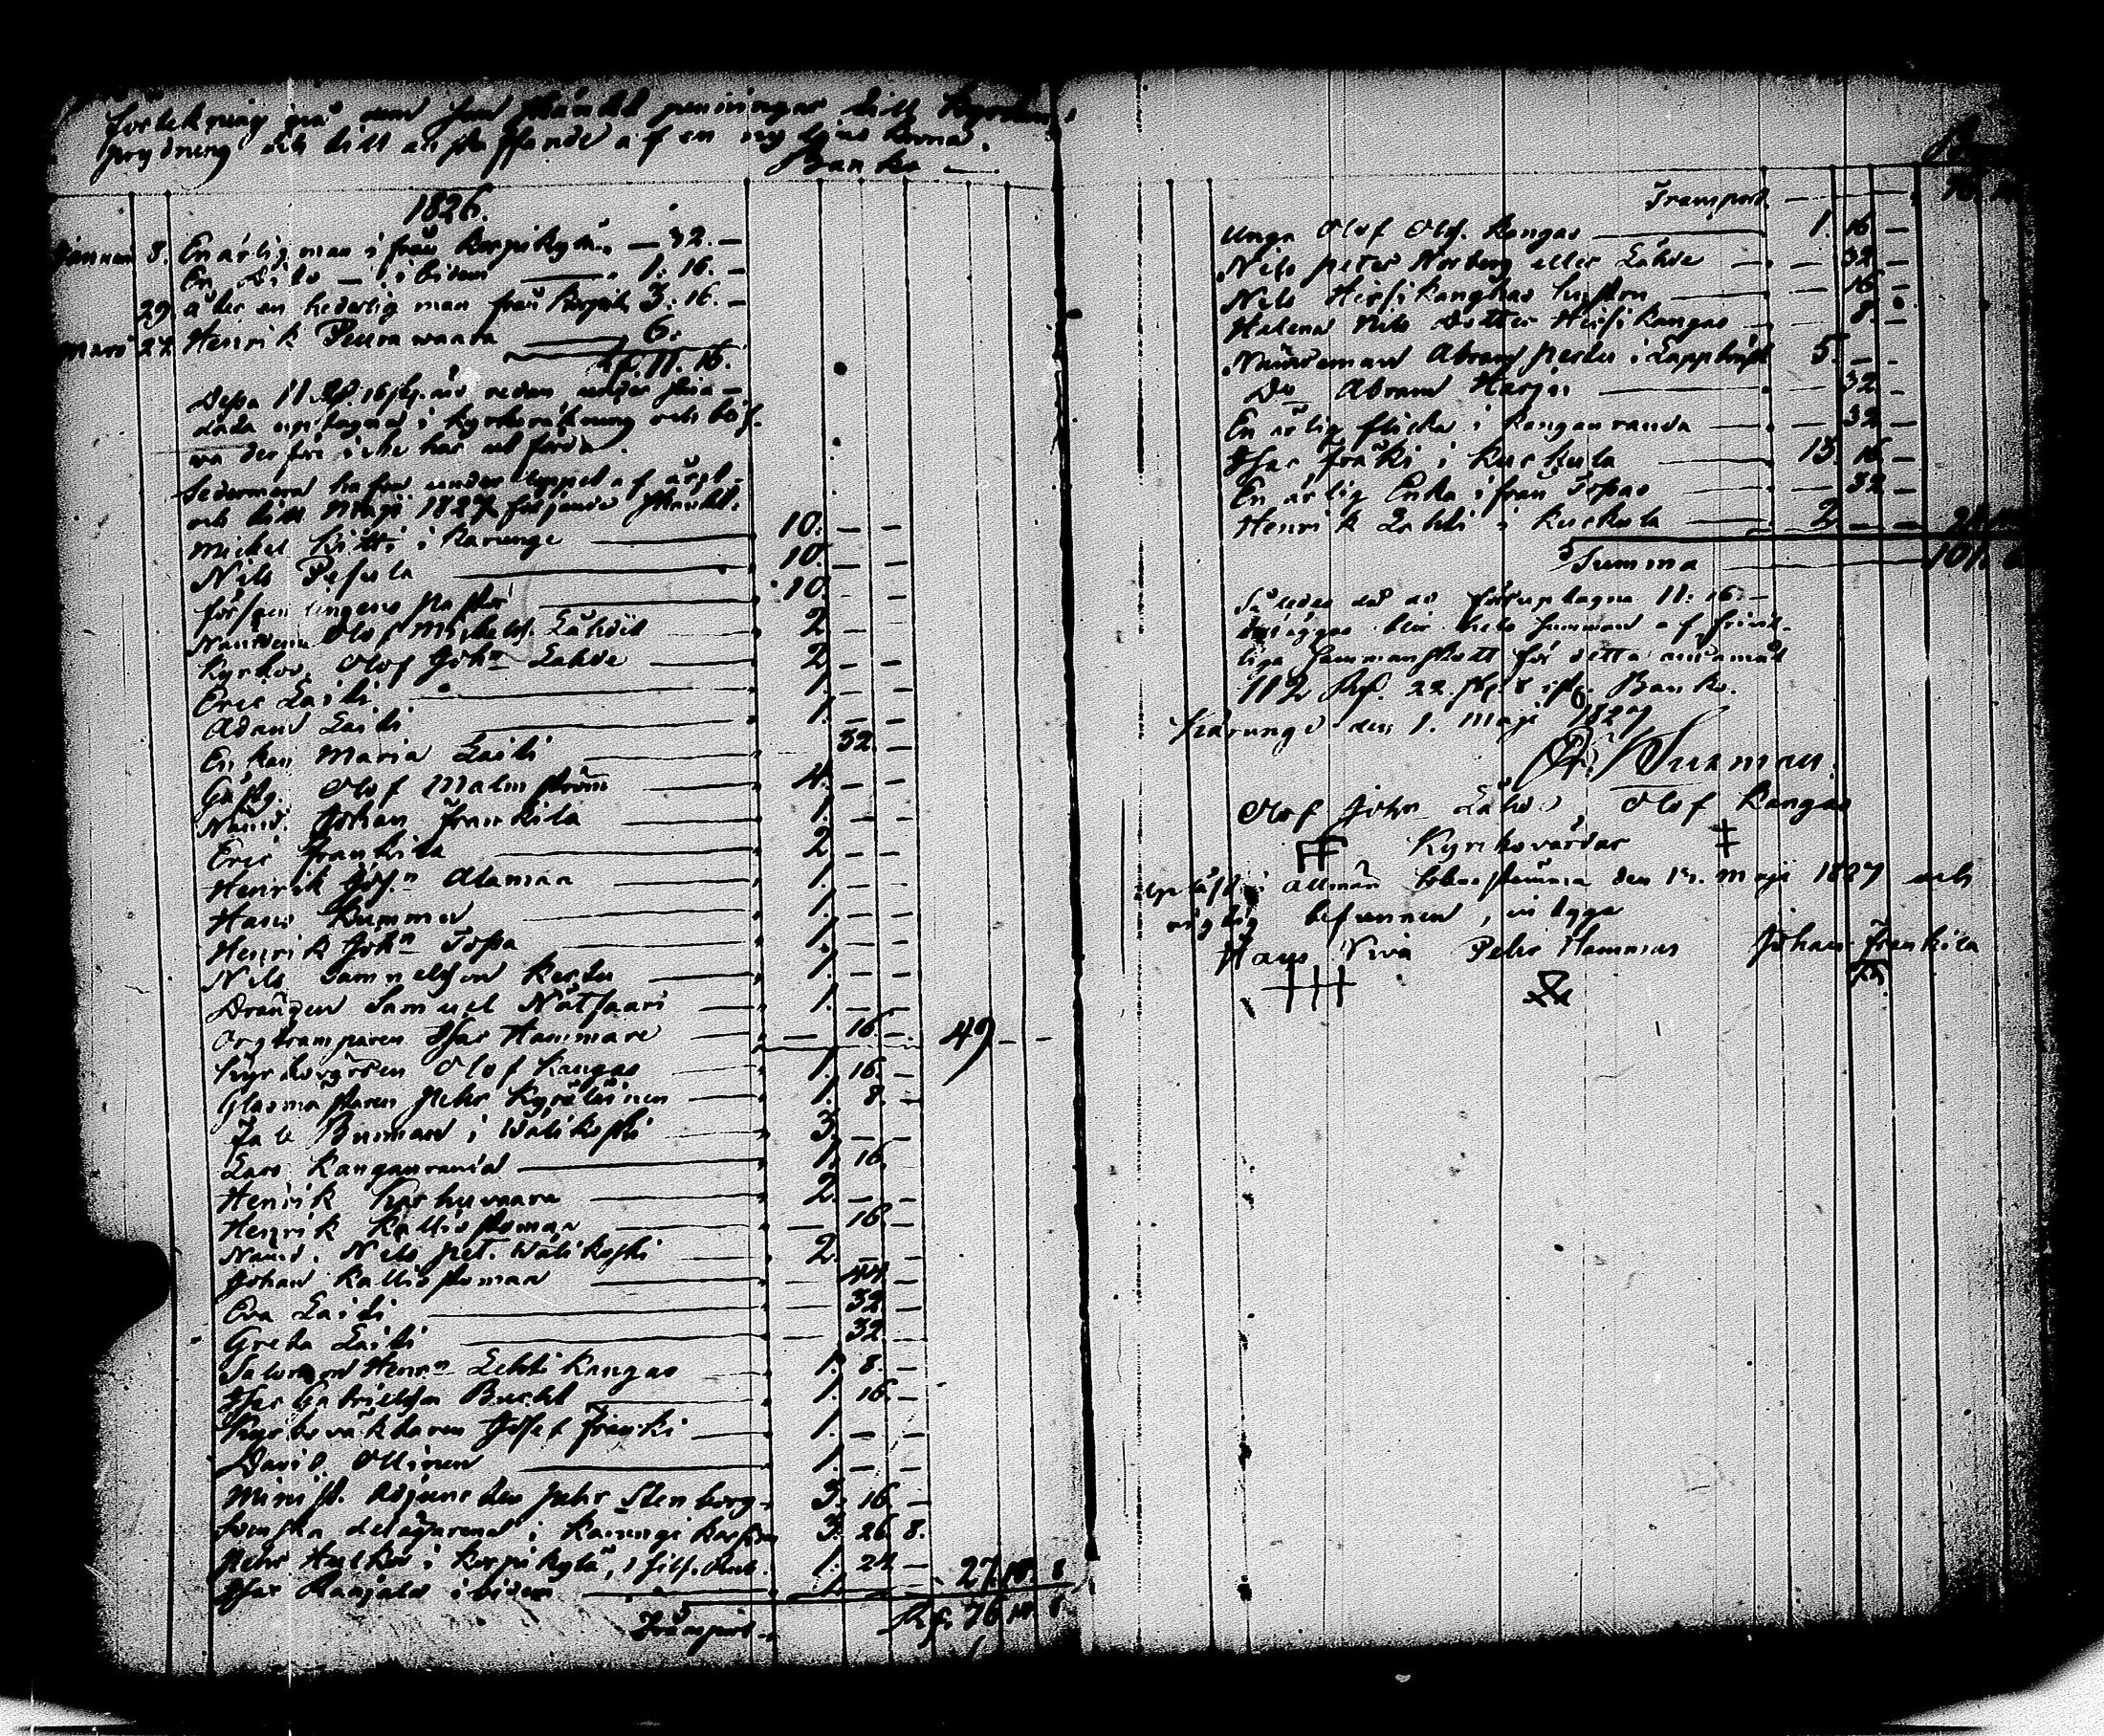 Förtekning på dem som skänkt penningar till Kyrkans
prydning och till anskaffande af en ny ljus krona.
Banko
1826.
Januari 8. En ärlig man ifrån Korpikylä, — 32. —
En Dito — ibidem — 1. 16. —
29. åter en hederlig man från Korpik. 3. 16. —
Mars 27. Henrik Peura waara — 6.
Rf. 11. 16.
Dessa 11 Rf. 16 sk. äro redan under
Låda upptagna i Kyrkoräkning och
derföre icke här utförda.
Sedermera hafva under loppet af året
och till Maji 1827 följande skänkt:
Mickel Kitti i Karunge — 10. — —
Nils Pesula — 10. — —
Församlingens Pastor — 10 — —
Nämdem. Olof Michelss. Lähdet — 2 —
Kyrkov. Olof Joh:n Lähde — 2. — —
Eric Laiti — 1. — —
Adam Laiti — 1. — —
Enkan Maria Laiti — 32. —
Gästg. Olof Malmström — 4. — —
Nämd. Johan Frankila — 1. — —
Eric Frankila — 2 — —
Henrik Joh:n Alamaa — 1. — —
Hans Kummu — 1. — —
Henrik Joh:n Topa — 1. — —
Nils Samuelsson Kerttu — 1. — —
Drängen Samuel Nätsaari — 1. — —
Orgtramparen Isac Hammare — 16. — 49 — —
Kyrkovärden Olof Kangas — 1. 16. —
Glasmästaren Pehr Kyräläinen — 1. 8. —
Fale Burman i Wälikoski — 3. — —
Lars Kanganranta — 1. 16.
Henrik Karhuvaara — 2. — —
Henrik Kalliostoman — 16. —
Nämd. Nils Pet. Wälikoski — 2. — —
Johan Kalliostoman — 44 —
Eva Laiti — 32. —
Greta Laiti — 32. —
Salomon Henr:n Lehtikangas — 1. 8. —
Isac Gabrielsson Bucht — 1. 16. —
Kyrkoväktaren Josef Fränki — 1. — —
David Ollinen — 1. — —
Minist. Adjuncten Pehr Stenborg — 3. 16. —
Svenska delägarena i Karungi — 3. 26. 8.
Pehr Hulkoi i Korpikylä, i silf. — 1. 24 —
Isac Raajala ibidem — 1. — — 27. 18. 8
Transport — Rf. 76. 18. 8.
Transport — 76.
Unga Olof Olss. Kangas — 1. 16 —
Nils Peter Norberg eller Lähde — — 32 —
Nils Hirsikanghas hustru — 16 —
Halena Nils dotter Hirsikangas — 8. —
Nämdeman Abram Perttu i Lappträsk 5. — —
Do Abram Harju — 32 —
En ärlig flicka i Kanganranda — — 32 —
Isac Fräki i Kuckula — 13. 16 —
En ärlig Enka ifrån Topas — — 32 —
Henrik Lahti i Kuckula — 2. — —
Summa — 101.
Således då de förupptagna 11: 16. —
tilläggas blir hela summan af frivil-
liga sammanskott för detta ändamål
112 Rf. 22. sk. 8 rst. Banko.
Karunge den 1. Maji 1827
Olof Joh:n Lähde Olof Kangas
Kyrkovärdar
Uppläst i allmän Sockenstämma den 13. Maji 1827 och
rigtig befunnen, intyga
Hans Niva Pehr Hammar Johan Frankila